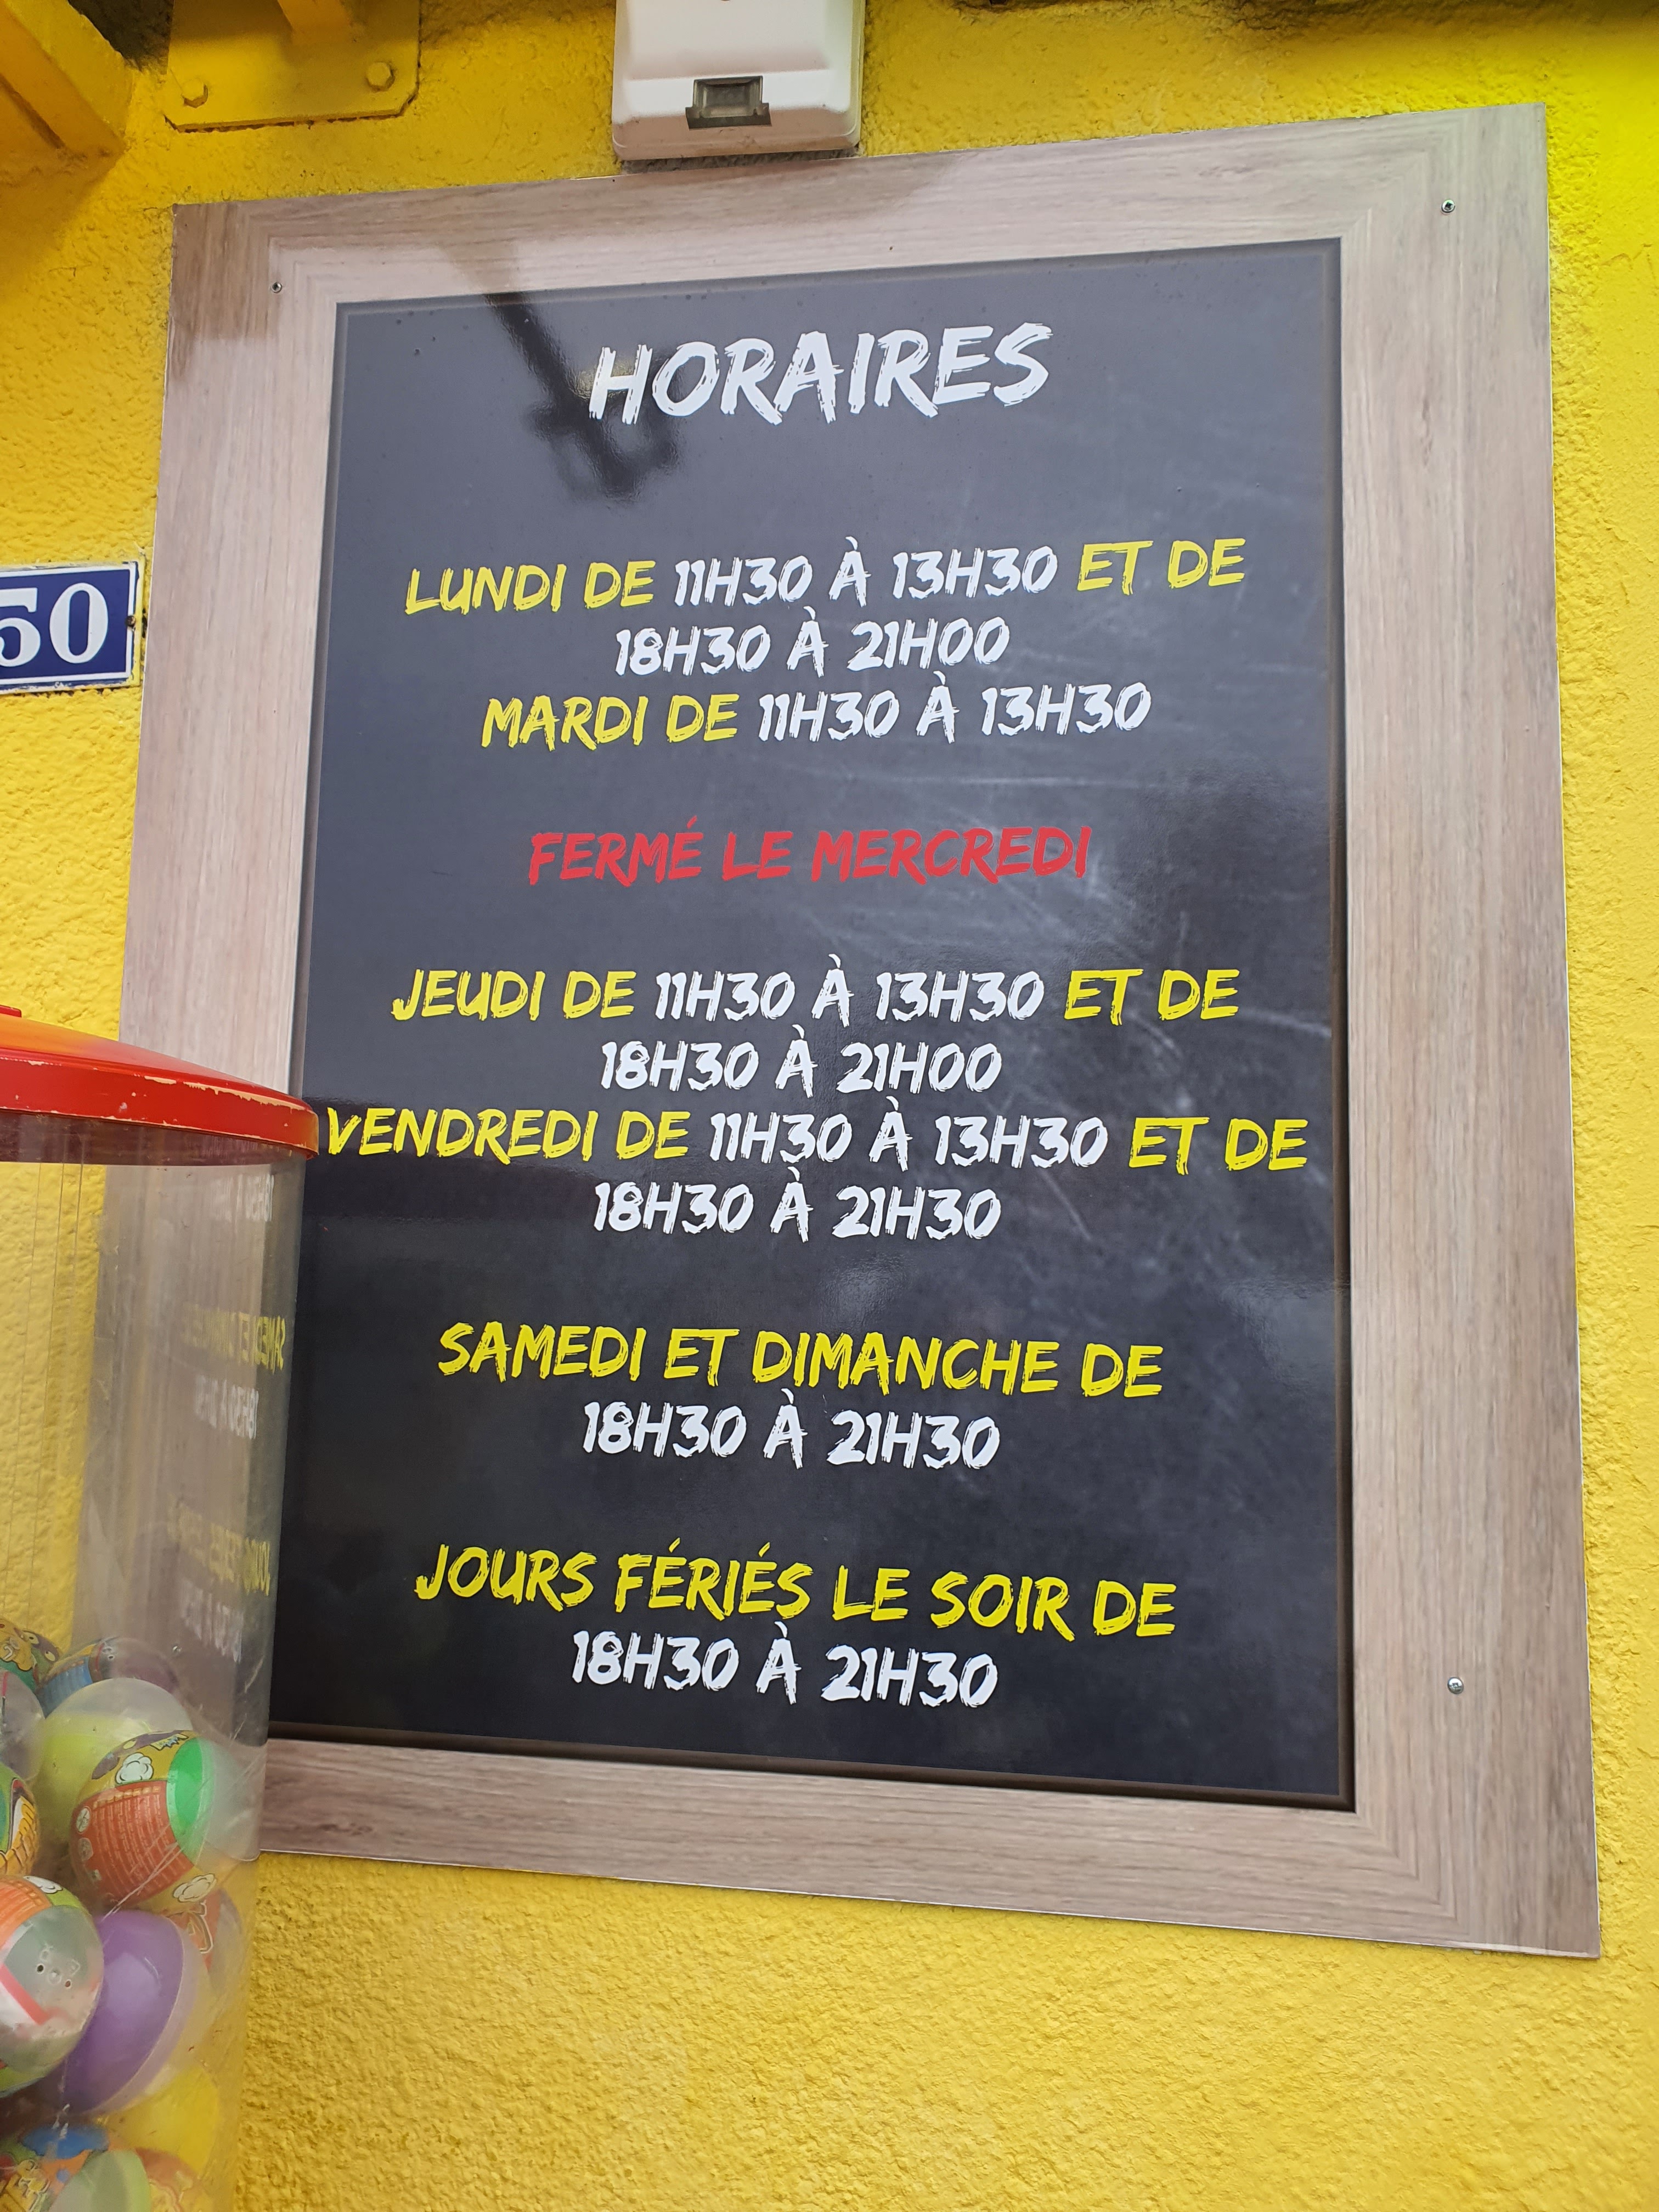 HORAIRES
LUNDI DE 11H30 À 13H30 ET DE
18H30 À 21H00
MARDI DE 11H30 À 13H30
FERMÉ LE MERCREDI
JEUDI DE 11H30 À 13H30 ET DE
18H30 À 21H00
VENDREDI DE 11H30 À 13H30 ET DE
18H30 À 21H30
SAMEDI ET DIMANCHE DE
18H30 À 21H30
JOURS FÉRIÉS LE SOIR DE
18H30 À 21H30
50